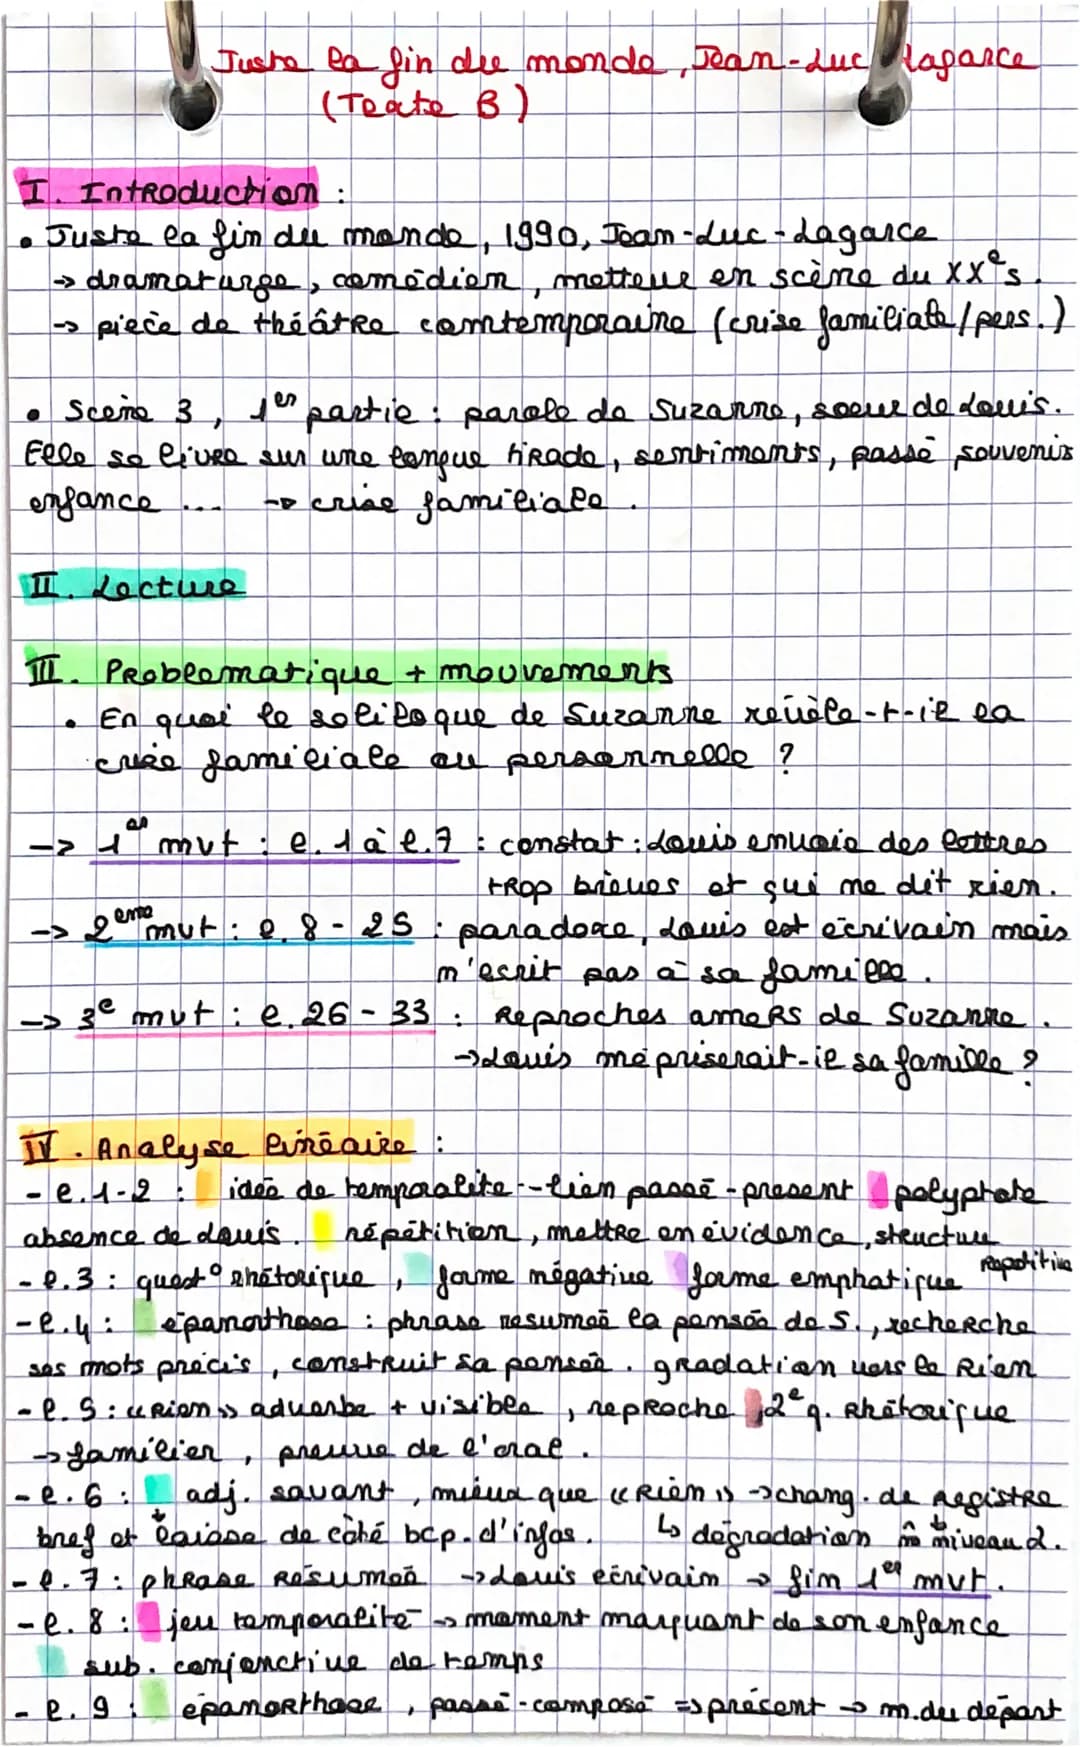 Juste la fin du monde, Jean-Luc Lagarce
(Texte B)
I. Introduction :
• Juste la fin du monde, 1990, Jean-Luc-Lagarce
→ dramaturge, comédien, metteur en scène du XXe s.
→ pièce de théâtre comtemporaine (crise familiale/pers.)
• Scène 3, 1er partie : parole de Suzanne, soeur de Louis.
Elle se livre sur une longue tirade, sentiments, passé souvenir
enfance ... → crise familiale.
II. Lecture
III. Problematique + mouvements
• En quoi le soliloque de Suzanne révèle-t-il la
crise familiale ou personnelle ?
-> 1er mvt : l. 1 à l.7 : constat : Louis envoie des lettres
trop brèves et qui ne dit rien.
-> 2eme mvt : l. 8 - 25 : paradoxe, Louis est écrivain mais
n'ecrit pas à sa famille.
-> 3e mvt : l. 26 - 33 : Reproches amers de Suzanne.
→ Louis mépriserait-il sa famille ?
IV. Analyse linéaire :
- l. 1-2 : idée de temporalité -- lien passé - présent polyptote
absence de Louis. répétition, mettre en évidence, structure
répétitive
- l.3 : quest° rhétorique, forme négative forme emphatique
- l.4 : épanorthose : phrase resumée la pensée de S., recherche
ses mots précis, construit sa pensée. gradation vers le Rien
- l.5 : « Rien » adverbe + visible, reproche, 2e q. Rhétorique
→ familier, preuve de l'oral.
- l.6 : adj. savant, mieux que « Rien » → chang. de registre
bref et laisse de côté bcp. d'infos. ↳ dégradation m̂ niveau 2.
- l.7 : phrase résumée → Louis écrivain → fin 1er mvt.
- l. 8 : jeu temporalité → moment marquant de son enfance
sub. conjonctive de temps
- l. 9 : épanorthose, passé-composé => présent → m. du départ